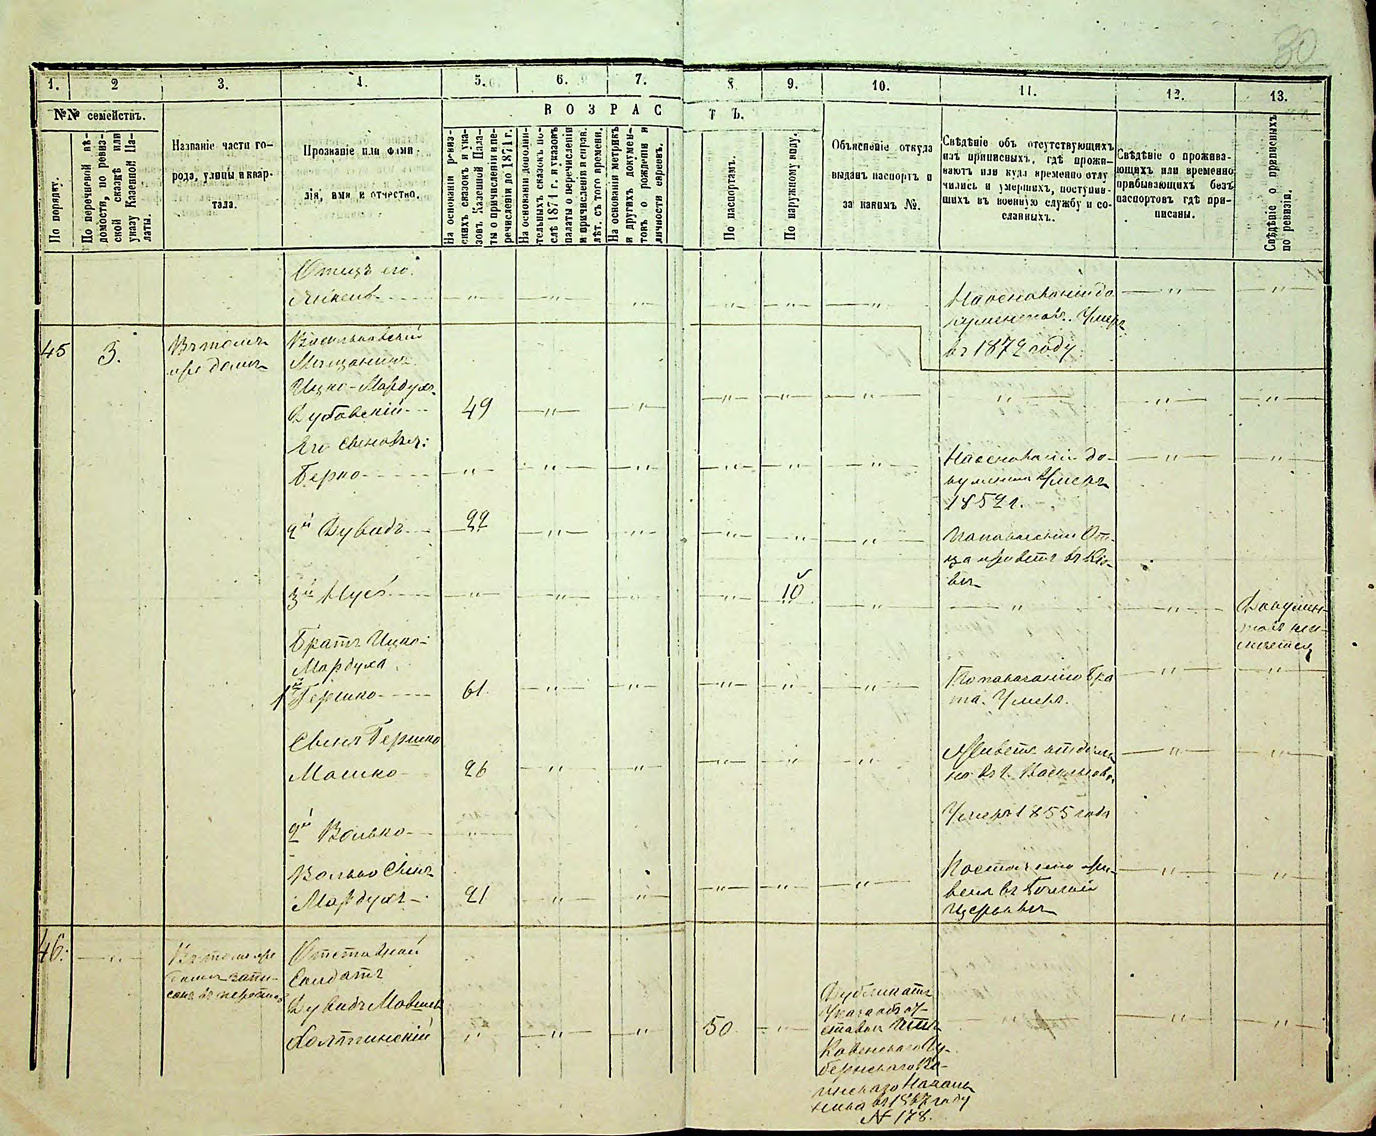 30
1. 2 3. 4. 5. 6. 7. 8 9. 10. 11. 12. 13.
№№ семействъ.
ВОЗРАСТЪ.
По порядку.
По перечневой вѣ-
домости, по ревиз-
ской сказкѣ или
указу Казенной Па-
латы.
Названіе части го-
рода, улицы и квар-
тала.
Прозваніе или фами-
лія, имя и отчество.
На основаніи ревиз-
скихъ сказокъ и ука-
зовъ Казенной Пала-
ты о причисленіи и пе-
речисленіи до 1871 г.
На основаніи дополни-
тельныхъ сказокъ по-
слѣ 1874 г. и указовъ
палаты о перечисленіи
и причисленіи и справ.
лѣт. съ того времени.
На основаніи метрикъ
и другихъ докумен-
товъ о рожденіи и
личности евреевъ.
По паспортамъ.
По наружному виду.
Объясненіе откуда
выданъ паспортъ и
за какимъ №.
Свѣдѣніе объ отсутствующихъ
изъ приписныхъ, гдѣ прожи-
ваютъ или куда временно отлу
чились и умершихъ, поступив-
шихъ въ военную службу и со-
сланныхъ.
Свѣдѣніе о прожива-
ющихъ или временно
прибывающихъ безъ
паспортовъ гдѣ при-
писаны.
Свѣдѣніе о приписныхъ
по ревизіи.
Отецъ его
На основаніи до
кументовъ. Умеръ
въ 1872 году
45 3. Въ томъ
же домѣ
Васильковскій
Мѣщанинъ
Ицко-Мордухъ
Дубовскій 49
Его сыновья:
Берко
На основаніи до-
кумента Умеръ
1852 г.
2й Дувидъ 22
По показанію От-
ца живетъ въ Кіе-
вѣ
3й Нусь 10
Докумен-
товъ неи-
мѣется
Братъ Ицко-
Мордуха
1й Гершко 61
По показанію Бра
та. Умеръ.
Сынъ Гершко
Мошко 26
Живетъ отдѣль
но въ г. Васильковѣ
2й Волько
Умеръ 1855 года
Волько Сынъ
Мордухъ 21
въ Бѣлой
Церквѣ
46. Въ томъ же
домѣ запи-
санъ
Отставной
Солдатъ
Дувидъ Мовшев
50
Дубликатъ
Указа объ от-
ставки
Ковенскаго Гу-
бернскаго Во-
инскаго Началь
ника въ 1867 году
№ 178.